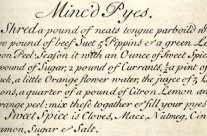 Minc'd Pyes.
Shred a pound of neats tongue parboild w
pound of beef Suet 7 Peppins & a green Le
on Peel: Season it with an Ounce of Sweet Spice
pound of Sugar, 2 pound of Currants, ½ a pint of
ack, a little Orange flower water, the juyce of 3
ons, a quarter of a pound of Citron Lemon an
range peel: mix these together & fill your pyes
Sweet Spice is Cloves, Mace, Nutmeg, Cin
amon, Sugar & Salt.